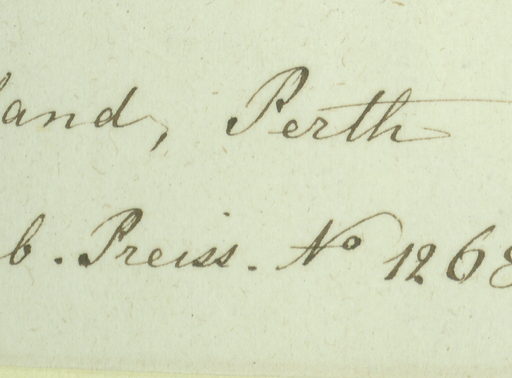 land, Perth
b. Preiss. No 1268